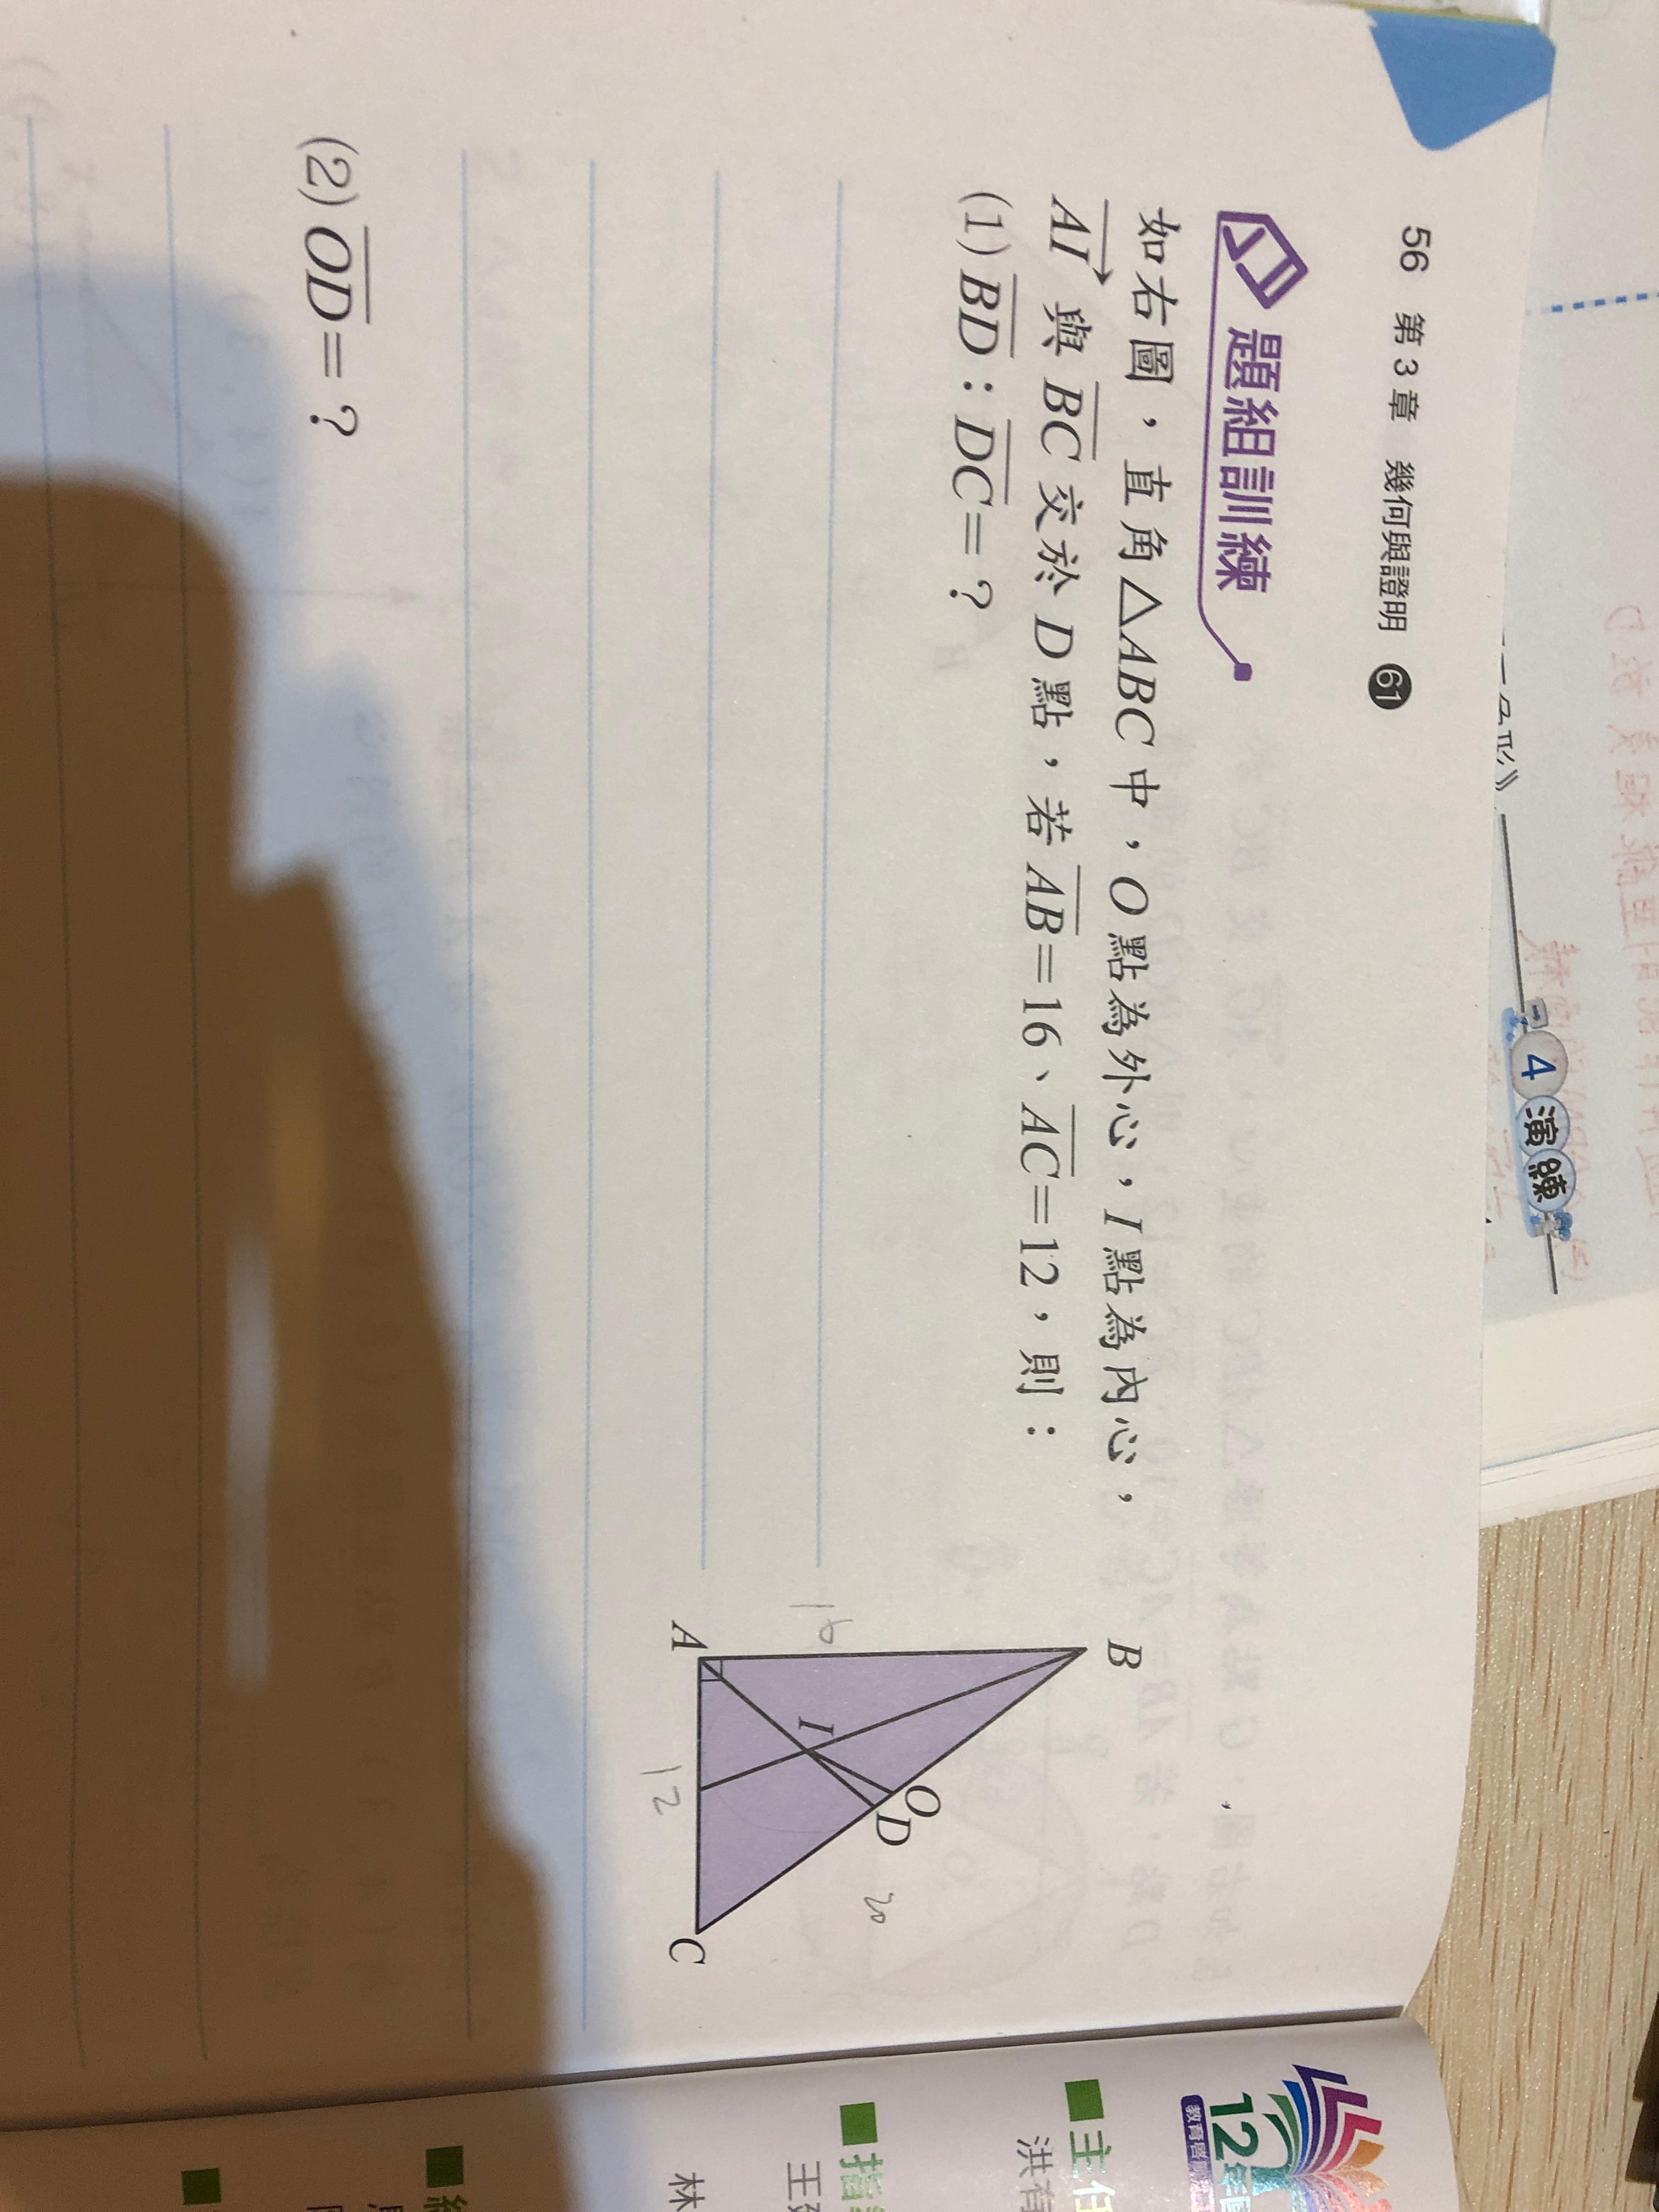 56 第3章 幾何與證明 61
題組訓練
如右圖,直角△ABC中,O點為外心,I點為內心,
AI 與 BC 交於 D 點,若 AB=16、AC=12,則:
(1) BD:DC=?
(2) OD=?
B
16
A
I
O
D
20
12
C
4 演練
12年
主任
洪有
指
林